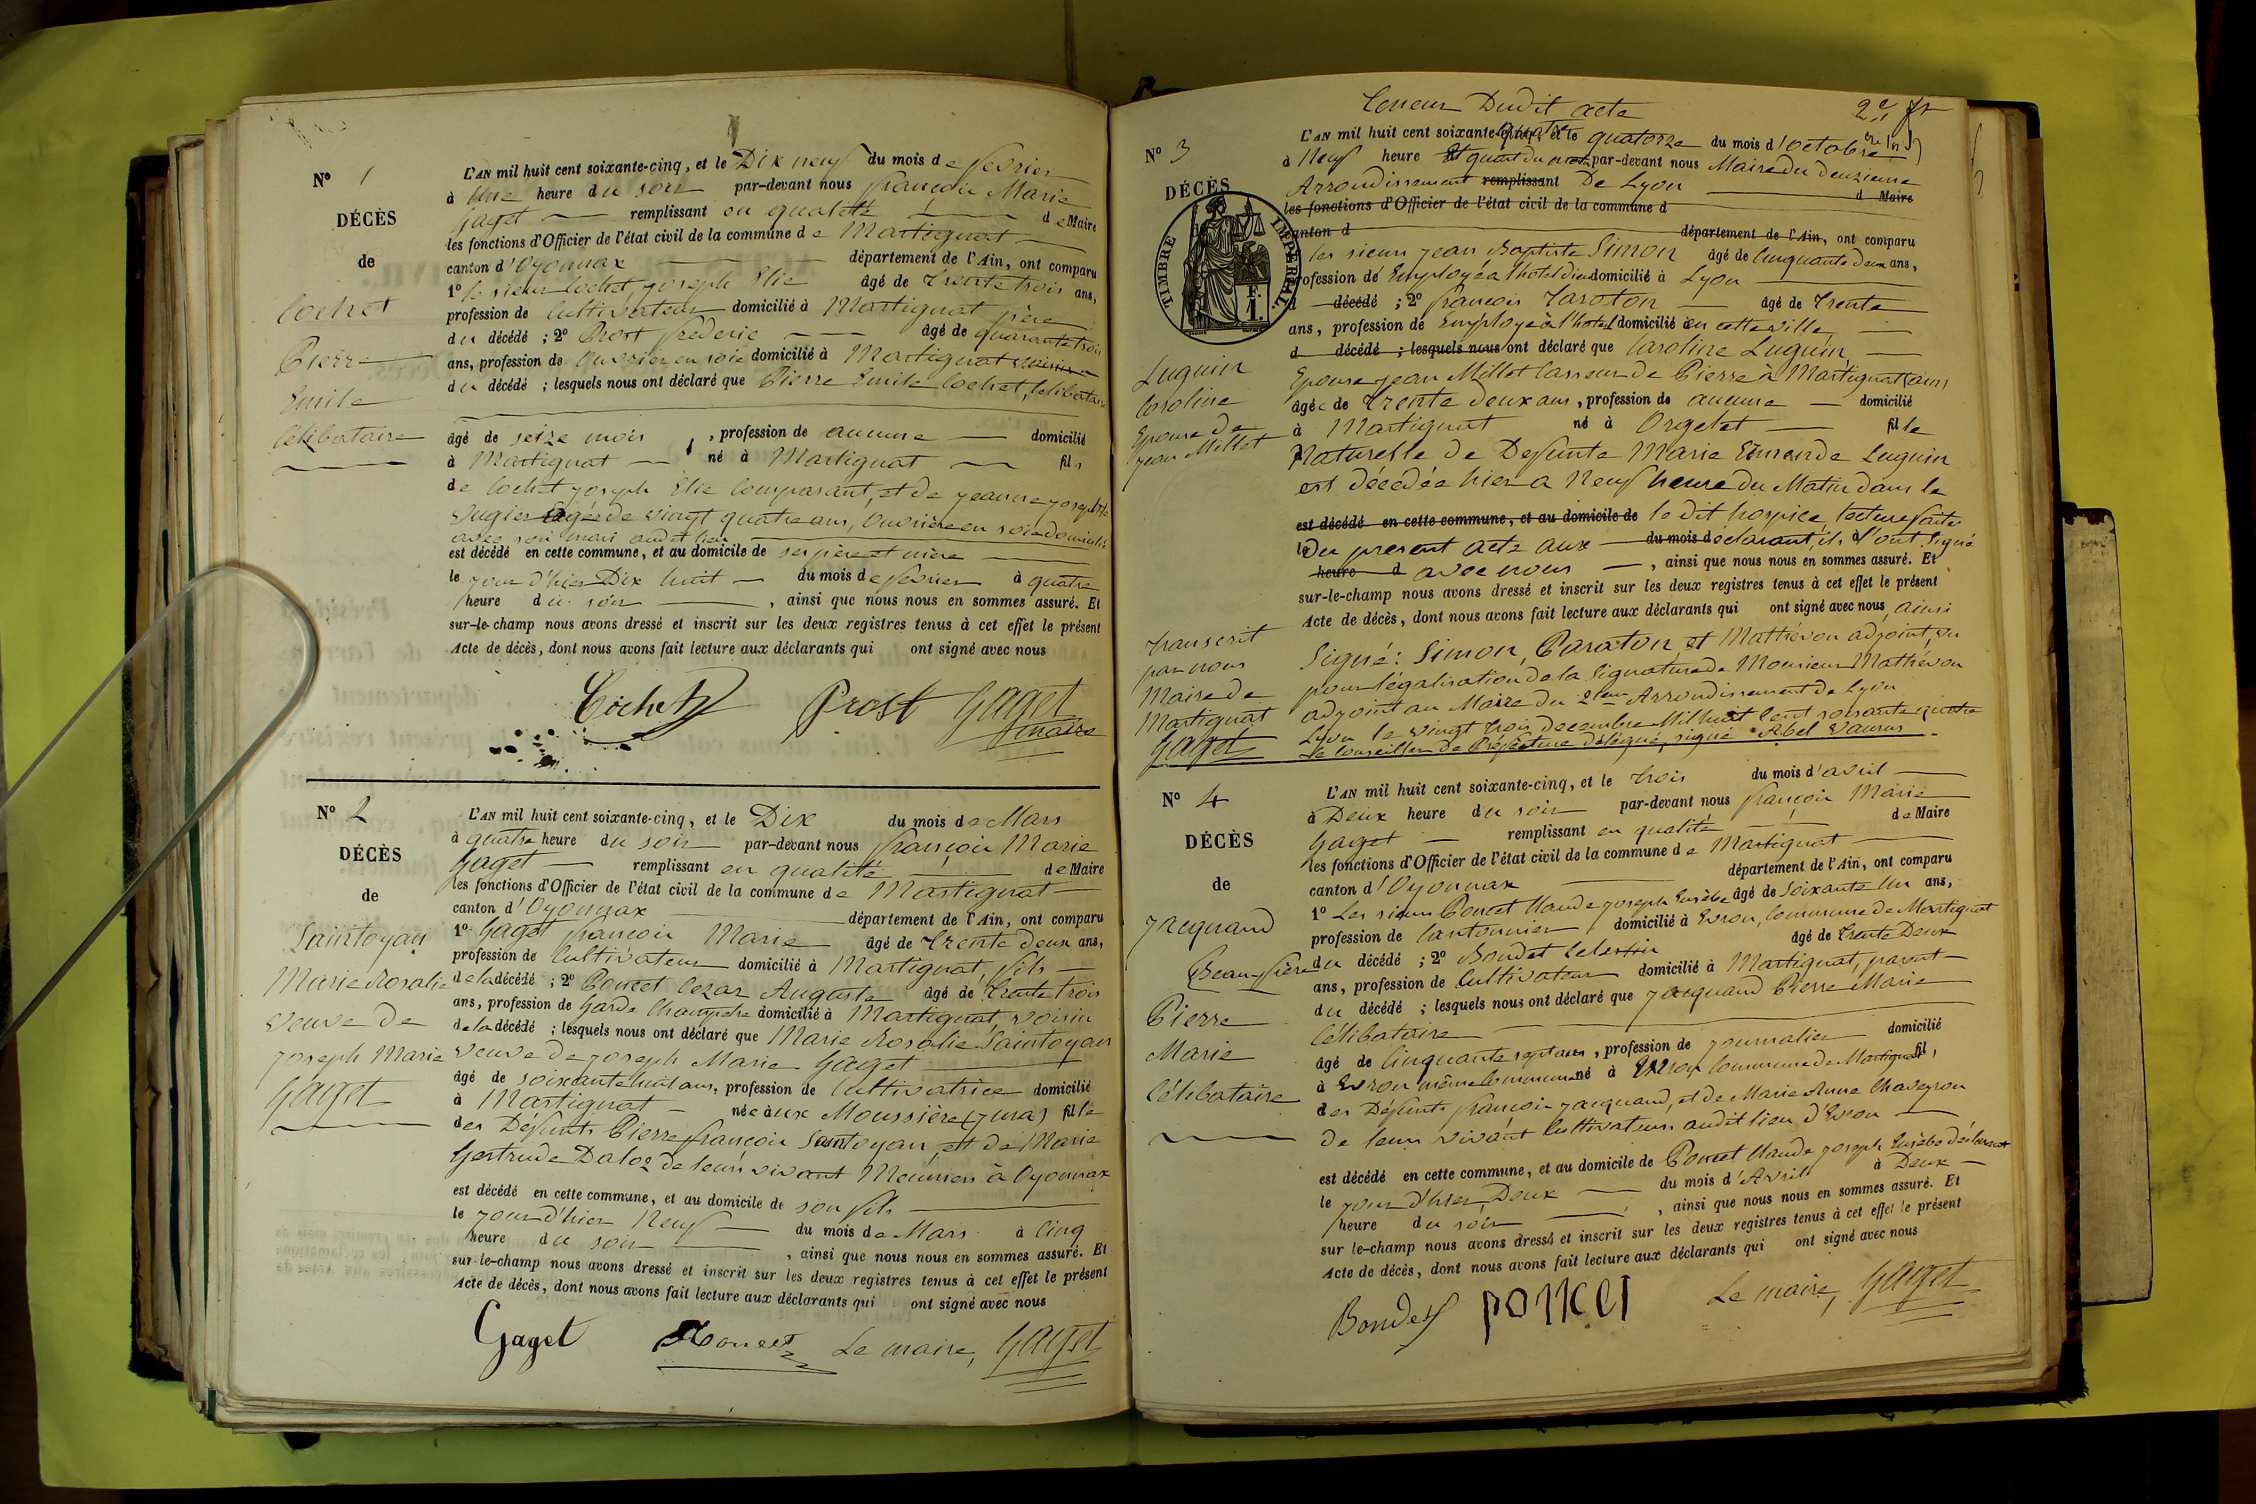 N° 1
DÉCÈS
de
Cochet
Pierre
Emile
Célibataire
L'AN mil huit cent soixante-cinq, et le Dix neuf du mois de fevrier
à Une heure du soir par-devant nous françois Marie
Gaget remplissant en qualité de Maire
les fonctions d'Officier de l'état civil de la commune de Martignat
canton d'Oyonnax département de l'Ain, ont comparu
1° le sieur Cochet joseph Elie âgé de Trente trois ans,
profession de Cultivateur domicilié à Martignat père
du décédé ; 2° Prost frederic âgé de quarante trois
ans, profession de Ouvrier en soie domicilié à Martignat voisin
du décédé ; lesquels nous ont déclaré que Pierre Emile Cochet, Celibataire
âgé de seize mois , profession de aucune domicilié
à Martignat né à Martignat fils
de Cochet joseph Elie Comparant, et de jeanne josephte
agée de vingt quatre ans, Ouvrière en soie domiciliée
avec son mari audit lieu
est décédé en cette commune, et au domicile de ses père et mère
le jour d'hier Dix huit du mois de fevrier à quatre
heure du soir , ainsi que nous nous en sommes assuré. Et
sur-le-champ nous avons dressé et inscrit sur les deux registres tenus à cet effet le présent
Acte de décès, dont nous avons fait lecture aux déclarants qui ont signé avec nous
Cochet Prost Gaget
maire
N° 2
DÉCÈS
de
Saintoyan
Marie Rosalie
veuve de
joseph Marie
Gaget
L'AN mil huit cent soixante-cinq, et le Dix du mois de Mars
à quatre heure du soir par-devant nous françois Marie
Gaget remplissant en qualité de Maire
les fonctions d'Officier de l'état civil de la commune de Martignat
canton d'Oyonnax département de l'Ain, ont comparu
1° Gaget françois Marie âgé de Trente deux ans,
profession de Cultivateur domicilié à Martignat, fils
de la décédé ; 2° Poncet Cezar Auguste âgé de Trente trois
ans, profession de Garde Champetre domicilié à Martignat, voisin
de la décédé ; lesquels nous ont déclaré que Marie Rosalie Saintoyan
veuve de joseph Marie Gaget
âgé de soixante huit ans, profession de Cultivatrice domicilié
à Martignat née aux Moussière (jura) fille
des Defunts Pierre françois Saintoyan, et de Marie
Gertrude Daloz de leurs vivant Meuniers à Oyonnax
est décédé en cette commune, et au domicile de son fils
le jour d'hier Neuf du mois de Mars à Cinq
heure du soir , ainsi que nous nous en sommes assuré. Et
sur-le-champ nous avons dressé et inscrit sur les deux registres tenus à cet effet le présent
Acte de décès, dont nous avons fait lecture aux déclarants qui ont signé avec nous
Gaget Poncet Le maire, Gaget
Teneur Dudit acte
N° 3
DÉCÈS
TIMBRE IMPÉRIAL
Luguin
Caroline
Epouse de
jean Millet
Transcrit
par nous
Maire de
Martignat
Gaget
L'AN mil huit cent soixante-quatre et le quatorze du mois d'octobre
à Neuf heure et quart du par-devant nous Maire du deuxieme
Arrondissement remplissant De Lyon
les fonctions d'Officier de l'état civil de la commune d d Maire
canton d département de l'Ain, ont comparu
les sieurs jean Baptiste Simon âgé de Cinquante deux ans,
profession de Employé a l'hotel dieu domicilié à Lyon
d décédé ; 2° françois Taroton âgé de Trente
ans, profession de Employé à l'hotel domicilié en cette ville
d décédé ; lesquels nous ont déclaré que Caroline Luguin
Epouse jean Millet Casseur de Pierre à Martignat (ain)
âgée de Trente deux ans, profession de aucune domicilié
à Martignat né à Orgelet fille
Naturelle de Defunte Marie Luguin
est décédée hier a Neuf heure du Matin dans le
est décédé en cette commune, et au domicile de le dit hospice, lecture faite
le du present acte aux du mois déclarant, ils à l'ont signé
heure d avec nous , ainsi que nous nous en sommes assuré. Et
sur-le-champ nous avons dressé et inscrit sur les deux registres tenus à cet effet le présent
Acte de décès, dont nous avons fait lecture aux déclarants qui ont signé avec nous ainsi
Signé : Simon, Paraton, et Mathévon adjoint, vu
pour légalisation de la signature de Monsieur Mathévon
adjoint au Maire du 2ieme Arrondissement de Lyon
Lyon le vingt trois decembre Mil huit Cent soixante quatre
le Conseiller de Préfecture délégué, signé Abel
N° 4
DÉCÈS
de
Jacquand
Beau-frère
Pierre
Marie
Célibataire
L'AN mil huit cent soixante-cinq, et le trois du mois d'avril
à Deux heure du soir par-devant nous françois Marie
Gaget remplissant en qualité de Maire
les fonctions d'Officier de l'état civil de la commune de Martignat
canton d'Oyonnax département de l'Ain, ont comparu
1° Les sieurs Poncet Claude joseph Eusèbe âgé de Soixante un ans,
profession de Cantonnier domicilié à Evron, Commune de Martignat
du décédé ; 2° Bondet Celestin âgé de Trente Deux
ans, profession de Cultivateur domicilié à Martignat, parent
du décédé ; lesquels nous ont déclaré que jacquand Pierre Marie
Célibataire
âgé de Cinquante sept ans, profession de journalier domicilié
à Evron même Commune né à Evron Commune de Martignat fil,
des Défunts françois jacquand, et de Marie Anne Chaveyron
de leurs vivant Cultivateurs audit lieu d'Evron
est décédé en cette commune, et au domicile de Poncet Claude joseph Eusèbe déclarant
le jour d'hier Deux du mois d'Avril à Deux
heure du soir , ainsi que nous nous en sommes assuré. Et
sur le-champ nous avons dressé et inscrit sur les deux registres tenus à cet effet le présent
Acte de décès, dont nous avons fait lecture aux déclarants qui ont signé avec nous
Bondet poncet Le maire, Gaget